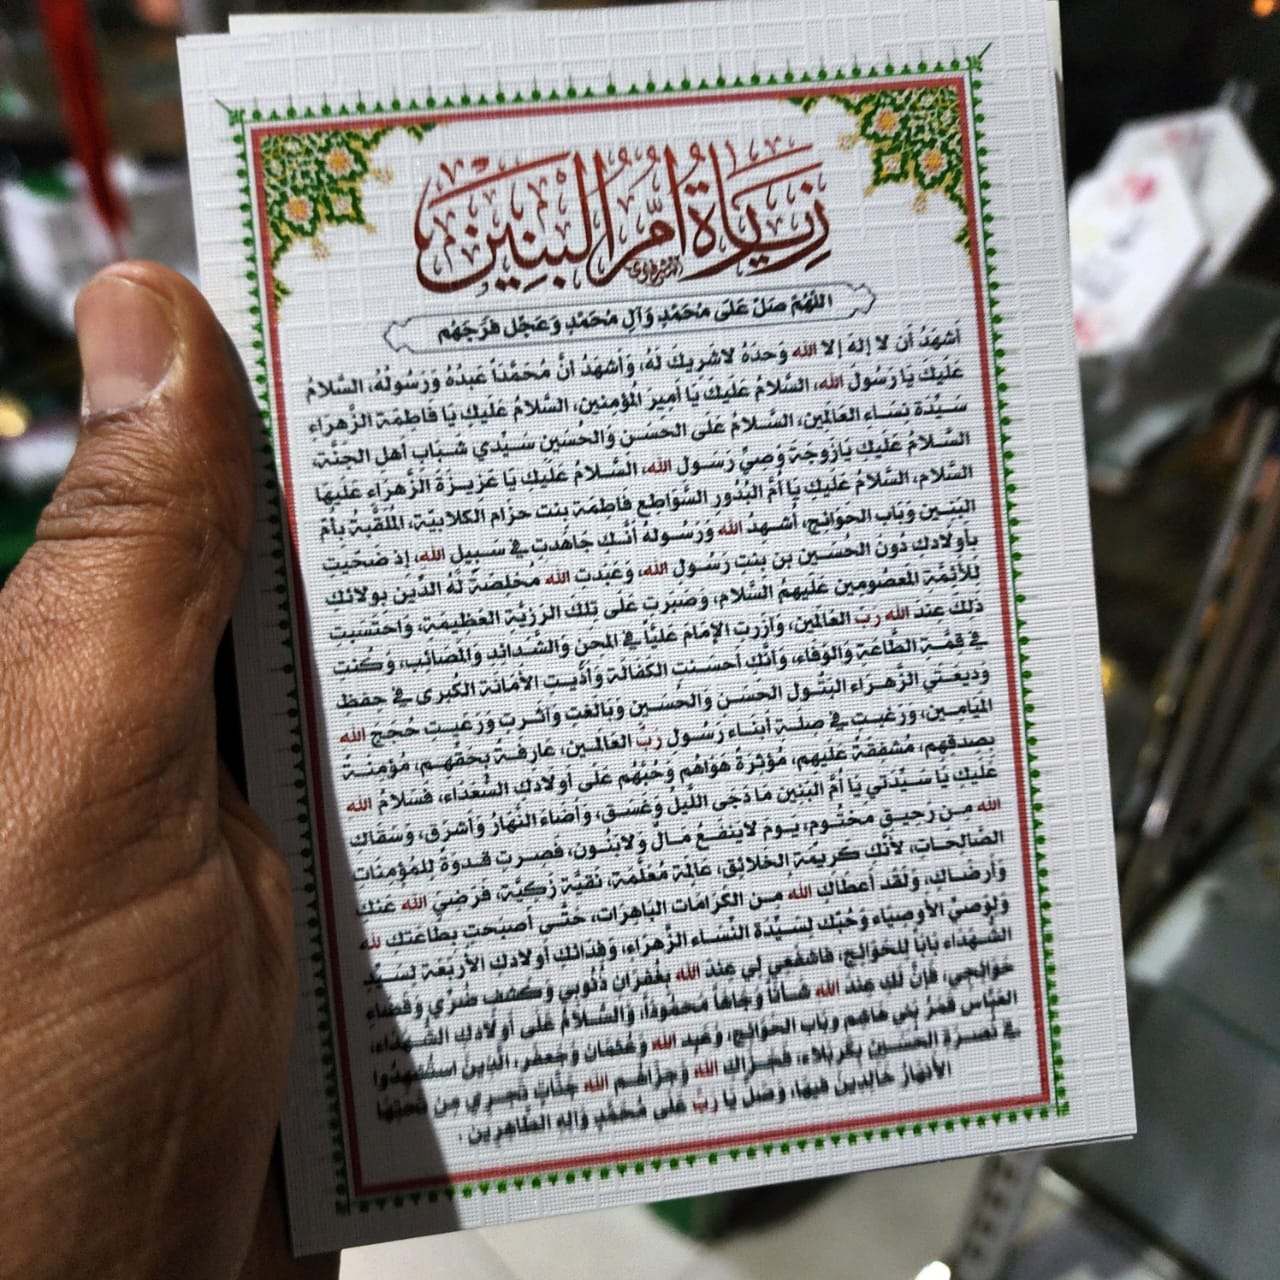 زيارة أم البنين
اللهم صل على محمد وآل محمد وعجل فرجهم
أشهد أن لا إله إلا الله وحده لا شريك له، وأشهد أن محمداً عبده ورسوله، السلام
عليك يا رسول الله، السلام عليك يا أمير المؤمنين، السلام عليك يا فاطمة الزهراء
سيدة نساء العالمين، السلام على الحسن والحسين سيدي شباب أهل الجنة،
السلام عليك يا زوجة وصي رسول الله، السلام عليك يا عزيزة الزهراء عليها
السلام، السلام عليك يا أم البدور السواطع فاطمة بنت حزام الكلابية، الملقبة بأم
البنين وباب الحوائج، أشهد الله ورسوله أنك جاهدت في سبيل الله، إذ ضحيت
بأولادك دون الحسين بن بنت رسول الله، وعبدت الله مخلصة له الدين بولائك
للأئمة المعصومين عليهم السلام، وصبرت على تلك الرزية العظيمة، واحتسبت
ذلك عند الله رب العالمين، وآزرت الإمام علياً في المحن والشدائد والمصائب، وكنت
في قمة الطاعة والوفاء، وأنك أحسنت الكفالة وأديت الأمانة الكبرى في حفظ
وديعتي الزهراء البتول الحسن والحسين وبالغت وآثرت ورعيت حجج الله
الميامين، ورغبت في صلة أبناء رسول رب العالمين، عارفة بحقهم، مؤمنة
بصدقهم، مشفقة عليهم، مؤثرة هواهم وحبهم على أولادك السعداء، فسلام الله
عليك يا سيدتي يا أم البنين ما دجى الليل وغسق، وأضاء النهار وأشرق، وسقاك
الله من رحيق مختوم، يوم لا ينفع مال ولا بنون، فصرت قدوة للمؤمنات
الصالحات، لأنك كريمة الخلائق، عالمة معلمة، نقية زكية، فرضي الله عنك
وأرضاك، ولقد أعطاك الله من الكرامات الباهرات، حتى أصبحت بطاعتك لله
ولوصي الأوصياء وحبك لسيدة النساء الزهراء، وفدائك أولادك الأربعة لسيد
الشهداء باباً للحوائج، فاشفعي لي عند الله بغفران ذنوبي وكشف ضري وقضاء
حوائجي، فإن لك عند الله شأناً وجاهاً محموداً، والسلام على أولادك الشهداء،
العباس قمر بني هاشم وباب الحوائج، وعبد الله وعثمان وجعفر، الذين استشهدوا
في نصرة الحسين بكربلاء، فجزاك الله وجزاهم الله جنات تجري من تحتها
الأنهار خالدين فيها، وصل يا رب على محمد وآله الطاهرين.